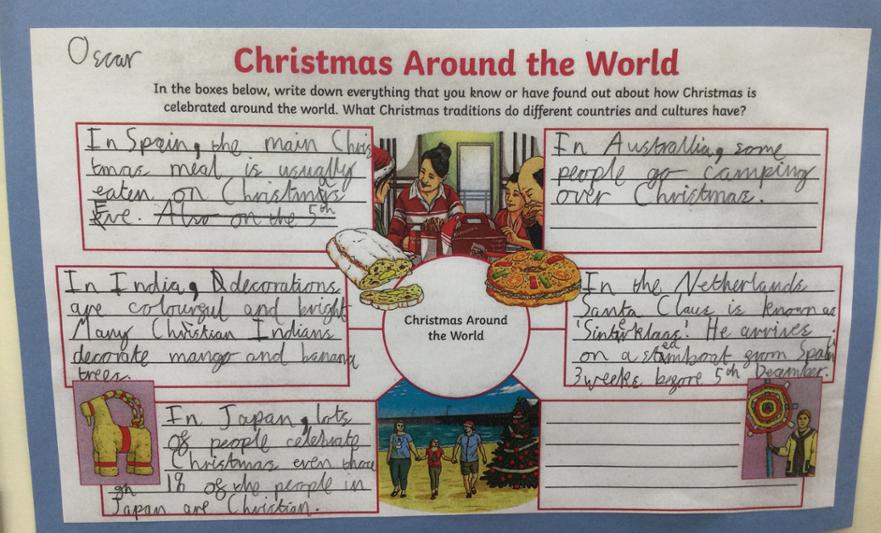 Oscar
Christmas Around the World
In the boxes below, write down everything that you know or have found out about how Christmas is
celebrated around the world. What Christmas traditions do different countries and cultures have?
In Spain, the main Chris
tmas meal is usually
eaten on Christmas
Eve. Also on the 5th
In Australlia, some
people go camping
over Christmas.
In India, decorations
are colourful and bright.
Many Christian Indians
decorate mango and banana
trees.
Christmas Around
the World
In the Netherlands
Santa Claus is known as
'Sinterklaas'. He arrives
on a steamboat from Spain
3 weeks before 5th December.
In Japan, lots
of people celebrate
Christmas even thou
gh 1% of the people in
Japan are Christian.